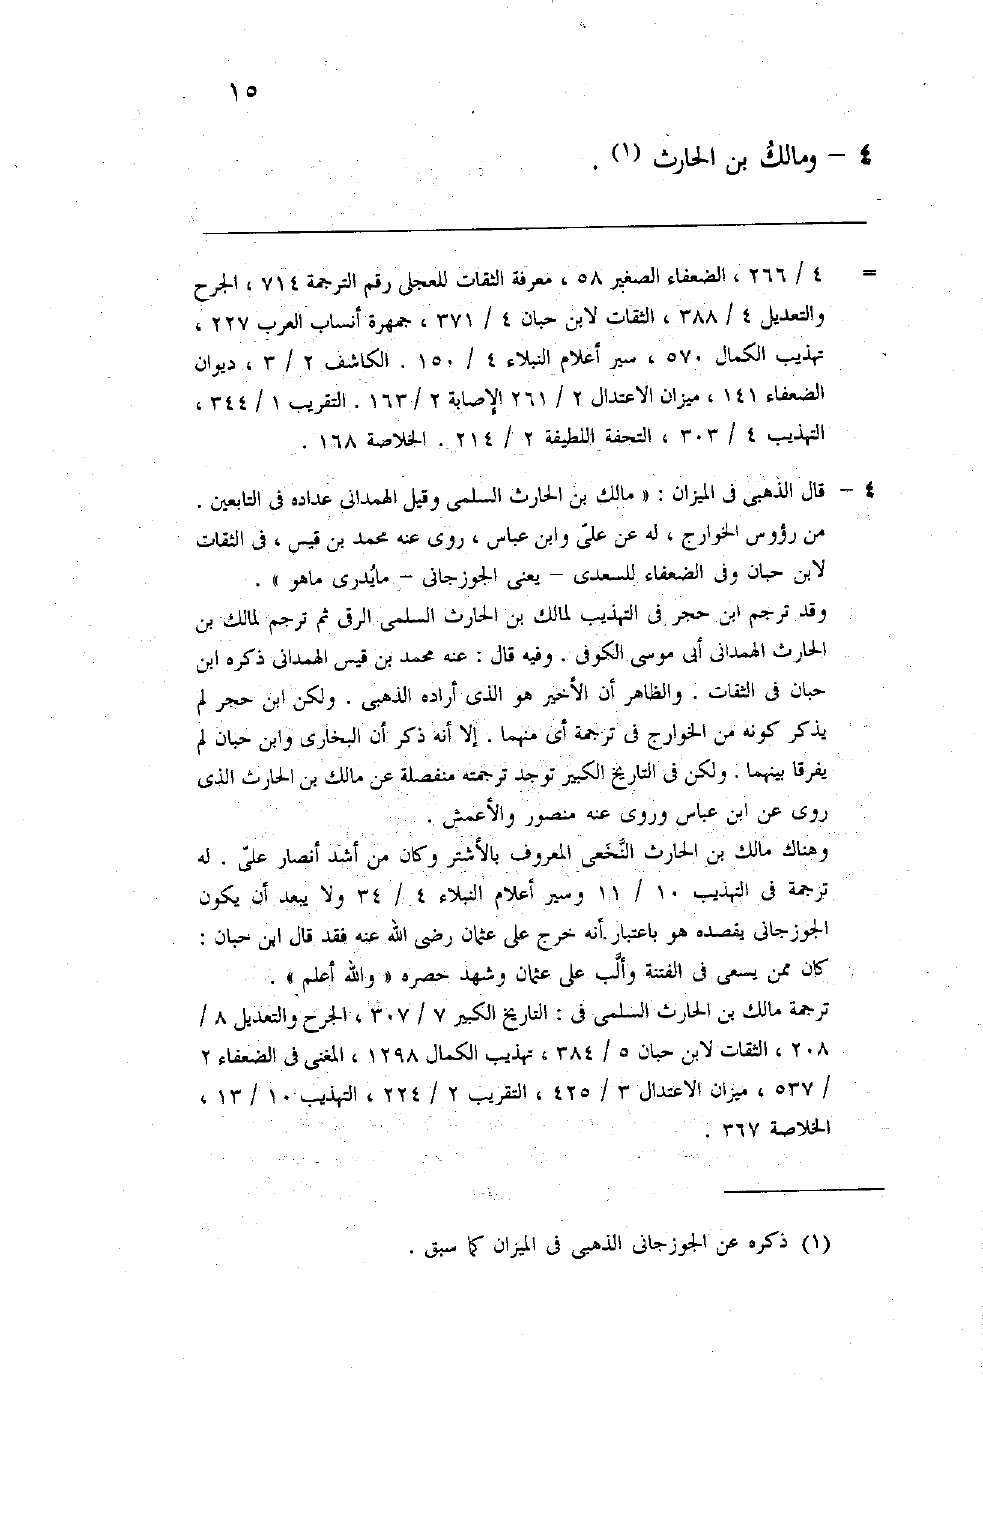 ١٥
٤ – ومالكُ بن الحارث (١) .
= ٤ / ٢٦٦ ، الضعفاء الصغير ٥٨ ، معرفة الثقات للعجلى رقم الترجمة ٧١٤ ، الجرح
والتعديل ٤ / ٣٨٨ ، الثقات لابن حبان ٤ / ٣٧١ ، جمهرة أنساب العرب ٢٢٧ ،
تهذيب الكمال ٥٧٠ ، سير أعلام النبلاء ٤ / ١٥٠ . الكاشف ٢ / ٣ ، ديوان
الضعفاء ١٤١ ، ميزان الاعتدال ٢ / ٢٦١ الإصابة ٢ / ١٦٣ . التقريب ١ / ٣٤٤ ،
التهذيب ٤ / ٣٠٣ ، التحفة اللطيفة ٢ / ٢١٤ . الخلاصة ١٦٨ .
٤ – قال الذهبى فى الميزان : « مالك بن الحارث السلمى وقيل الهمدانى عداده فى التابعين .
من رؤوس الخوارج ، له عن علىّ وابن عباس ، روى عنه محمد بن قيس ، فى الثقات
لابن حبان وفى الضعفاء للسعدى – يعنى الجوزجانى – مايُدرى ماهو » .
وقد ترجم ابن حجر فى التهذيب لمالك بن الحارث السلمى الرقى ثم ترجم لمالك بن
الحارث الهمدانى أبى موسى الكوفى . وفيه قال : عنه محمد بن قيس الهمدانى ذكره ابن
حبان فى الثقات . والظاهر أن الأخير هو الذى أراده الذهبى . ولكن ابن حجر لم
يذكر كونه من الخوارج فى ترجمة أى منهما . إلا أنه ذكر أن البخارى وابن حبان لم
يفرقا بينهما . ولكن فى التاريخ الكبير توجد ترجمته منفصلة عن مالك بن الحارث الذى
روى عن ابن عباس وروى عنه منصور والأعمش .
وهناك مالك بن الحارث النَّخَعى المعروف بالأشتر وكان من أشد أنصار علىّ . له
ترجمة فى التهذيب ١٠ / ١١ وسير أعلام النبلاء ٤ / ٣٤ ولا يبعد أن يكون
الجوزجانى يقصده هو باعتبار أنه خرج على عثمان رضى الله عنه فقد قال ابن حبان :
كان ممن يسعى فى الفتنة وألَّب على عثمان وشهد حصره « والله أعلم » .
ترجمة مالك بن الحارث السلمى فى : التاريخ الكبير ٧ / ٣٠٧ ، الجرح والتعديل ٨ /
٢٠٨ ، الثقات لابن حبان ٥ / ٣٨٤ ، تهذيب الكمال ١٢٩٨ ، المغنى فى الضعفاء ٢
/ ٥٣٧ ، ميزان الاعتدال ٣ / ٤٢٥ ، التقريب ٢ / ٢٢٤ ، التهذيب ١٠ / ١٣ ،
الخلاصة ٣٦٧ .
(١) ذكره عن الجوزجانى الذهبى فى الميزان كما سبق .